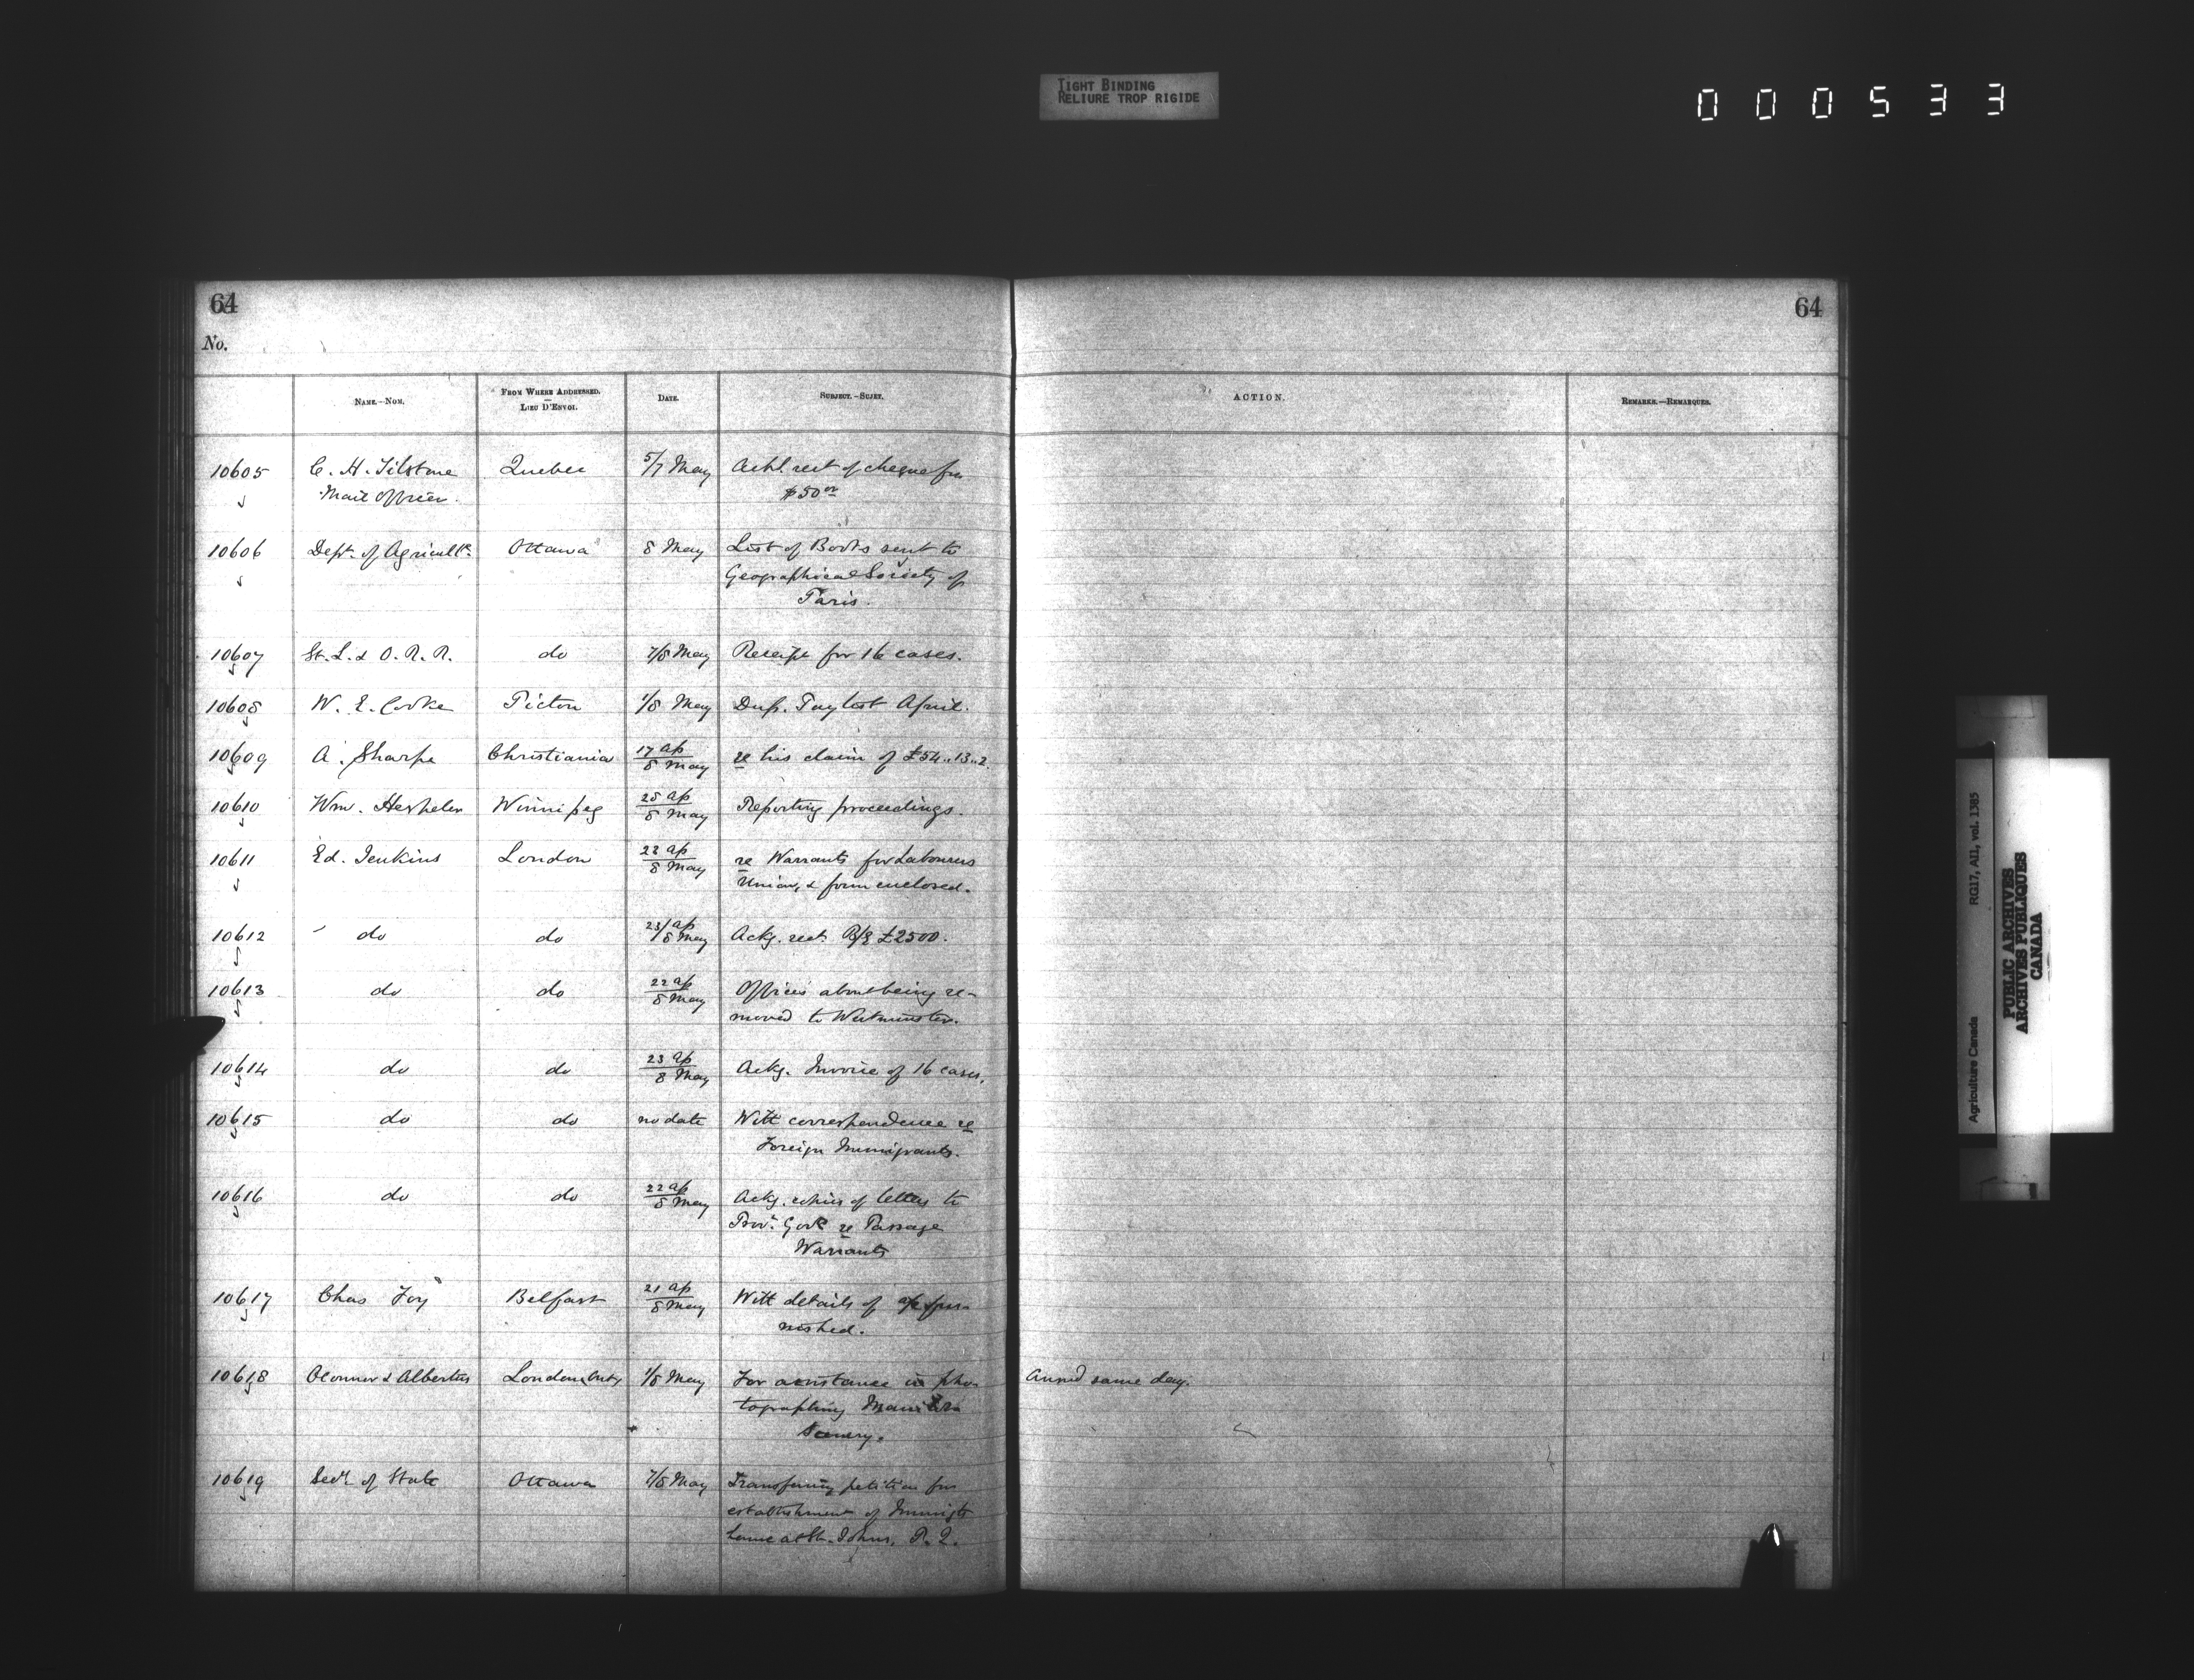 TIGHT BINDING
RELIURE TROP RIGIDE
000533
64
64
No.
NAME.—NOM.
FROM WHERE ADDRESSED.
—
LIEU D'ENVOI.
DATE.
SUBJECT.—SUJET.
ACTION.
REMARKS.—REMARQUES.
10605 C. H. Tilstone Quebec 5/7 May Ackl. rect of cheque for
Mail Officer. $50 00
10606 Dept. of Agricult. Ottawa 8 May List of Books sent to
Geographical Society of
Paris.
10607 St. L. & O. R. R. do 7/8 May Receipt for 16 cases.
10608 W. E. Cooke Picton 1/8 May Dup. Pay list April.
10609 A. Sharpe Christiania 17 ap/8 May re his claim of £54..13..2.
10610 Wm. Hespeler Winnipeg 25 ap/8 May Reporting proceedings.
10611 Ed. Jenkins London 22 ap/8 May re Warrants for Labourers
Union, & form enclosed.
10612 do do 23/ap/8 May Ackg. rect B/E £2500.
10613 do do 22 ap/8 May Offices about being re-
moved to Westminster.
10614 do do 23 ap/8 May Ackg. Invoice of 16 cases.
10615 do do no date With correspondence re
Foreign Immigrants.
10616 do do 22 ap/8 May Ackg. copies of letters to
Prov. Govt re Passage
Warrants
10617 Chas Foy Belfast 21 ap/8 May With details of a/c fur-
nished.
10618 Oconnor & Albertus London, Ont, 1/8 May For assistance in pho-
tographing Manitoba
Scenery.
Answd same day.
10619 Secy. of State Ottawa 7/8 May Transferring petition for
establishment of Immigt
home at St. Johns, P. Q.
Agriculture Canada RG17, AII, vol. 1385
PUBLIC ARCHIVES
ARCHIVES PUBLIQUES
CANADA